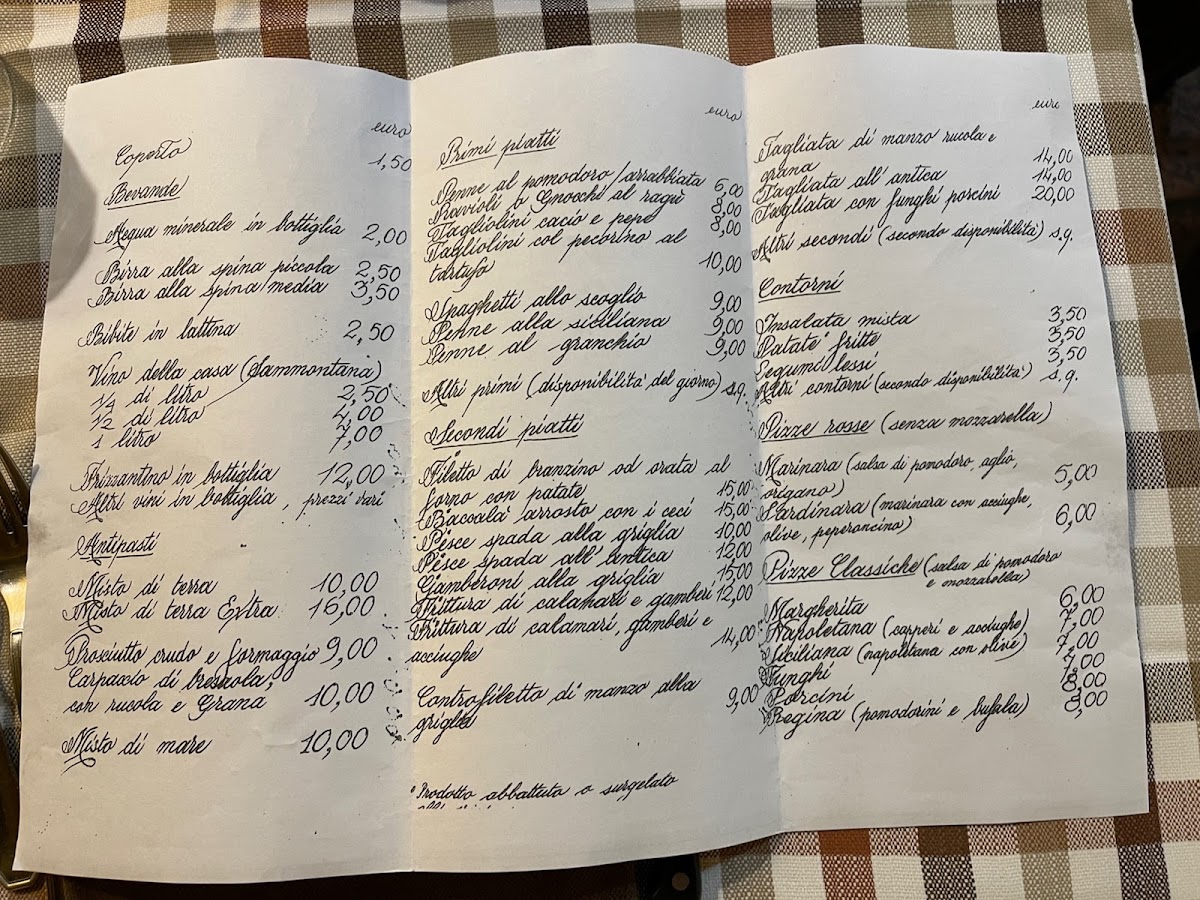 euro
Coperto 1,50
Bevande
Acqua minerale in bottiglia 2,00
Birra alla spina piccola 2,50
Birra alla spina media 3,50
Bibite in lattina 2,50
Vino della casa (Sammontana)
1/4 di litro 2,50
1/2 di litro 4,00
1 litro 7,00
Frizzantino in bottiglia 12,00
Altri vini in bottiglia, prezzi vari
Antipasti
Misto di terra 10,00
Misto di terra Extra 16,00
Prosciutto crudo e formaggio 9,00
Carpaccio di bresaola,
con rucola e Grana 10,00
Misto di mare 10,00
euro
Primi piatti
Penne al pomodoro/arrabbiata 6,00
Ravioli o Gnocchi al ragù 8,00
Tagliolini cacio e pepe 8,00
Tagliolini col pecorino al
tartufo 10,00
Spaghetti allo scoglio 9,00
Penne alla siciliana 9,00
Penne al granchio 9,00
Altri primi (disponibilità del giorno) s.q.
Secondi piatti
Filetto di branzino od orata al
forno con patate 15,00
Baccalà arrosto con i ceci 15,00
Pesce spada alla griglia 10,00
Pesce spada all'antica 12,00
Gamberoni alla griglia 15,00
Frittura di calamari e gamberi 12,00
Frittura di calamari, gamberi e
acciughe 14,00
Controfiletto di manzo alla
griglia 9,00
° Prodotto abbattuto o surgelato
euro
Tagliata di manzo rucola e
grana 14,00
Tagliata all'antica 14,00
Tagliata con funghi porcini 20,00
Altri secondi (secondo disponibilità) s.q.
Contorni
Insalata mista 3,50
Patate fritte 3,50
Legumi lessi 3,50
Altri contorni (secondo disponibilità) s.q.
Pizze rosse (senza mozzarella)
Marinara (salsa di pomodoro, aglio,
origano) 5,00
Sardinara (marinara con acciughe,
olive, peperoncino) 6,00
Pizze Classiche (salsa di pomodoro
e mozzarella)
Margherita 6,00
Napoletana (capperi e acciughe) 7,00
Siciliana (napoletana con olive) 7,00
Funghi 7,00
Porcini 8,00
Regina (pomodorini e bufala) 8,00